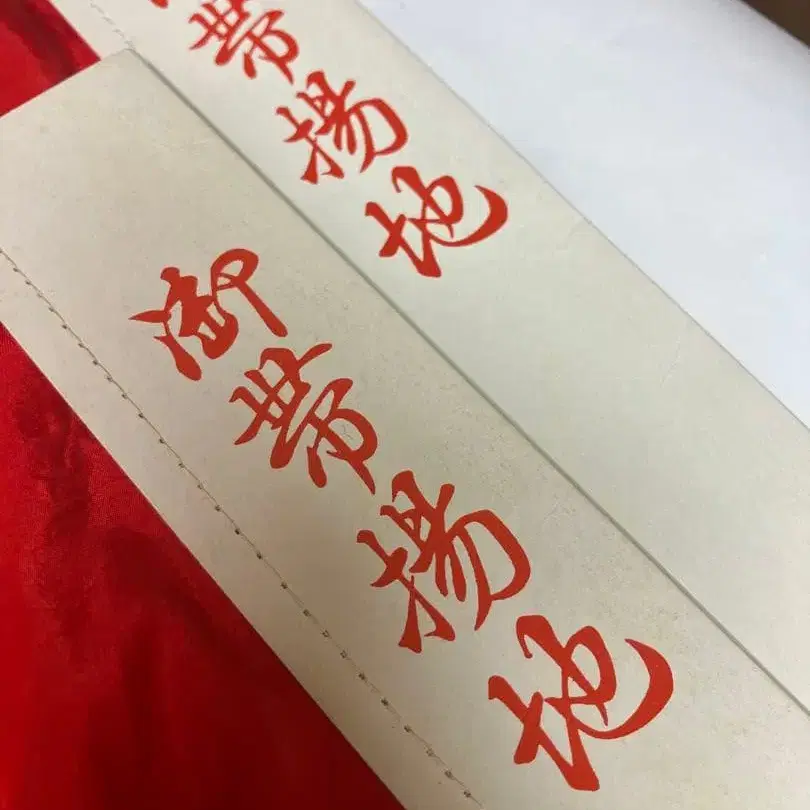 帯揚地
御帯揚地